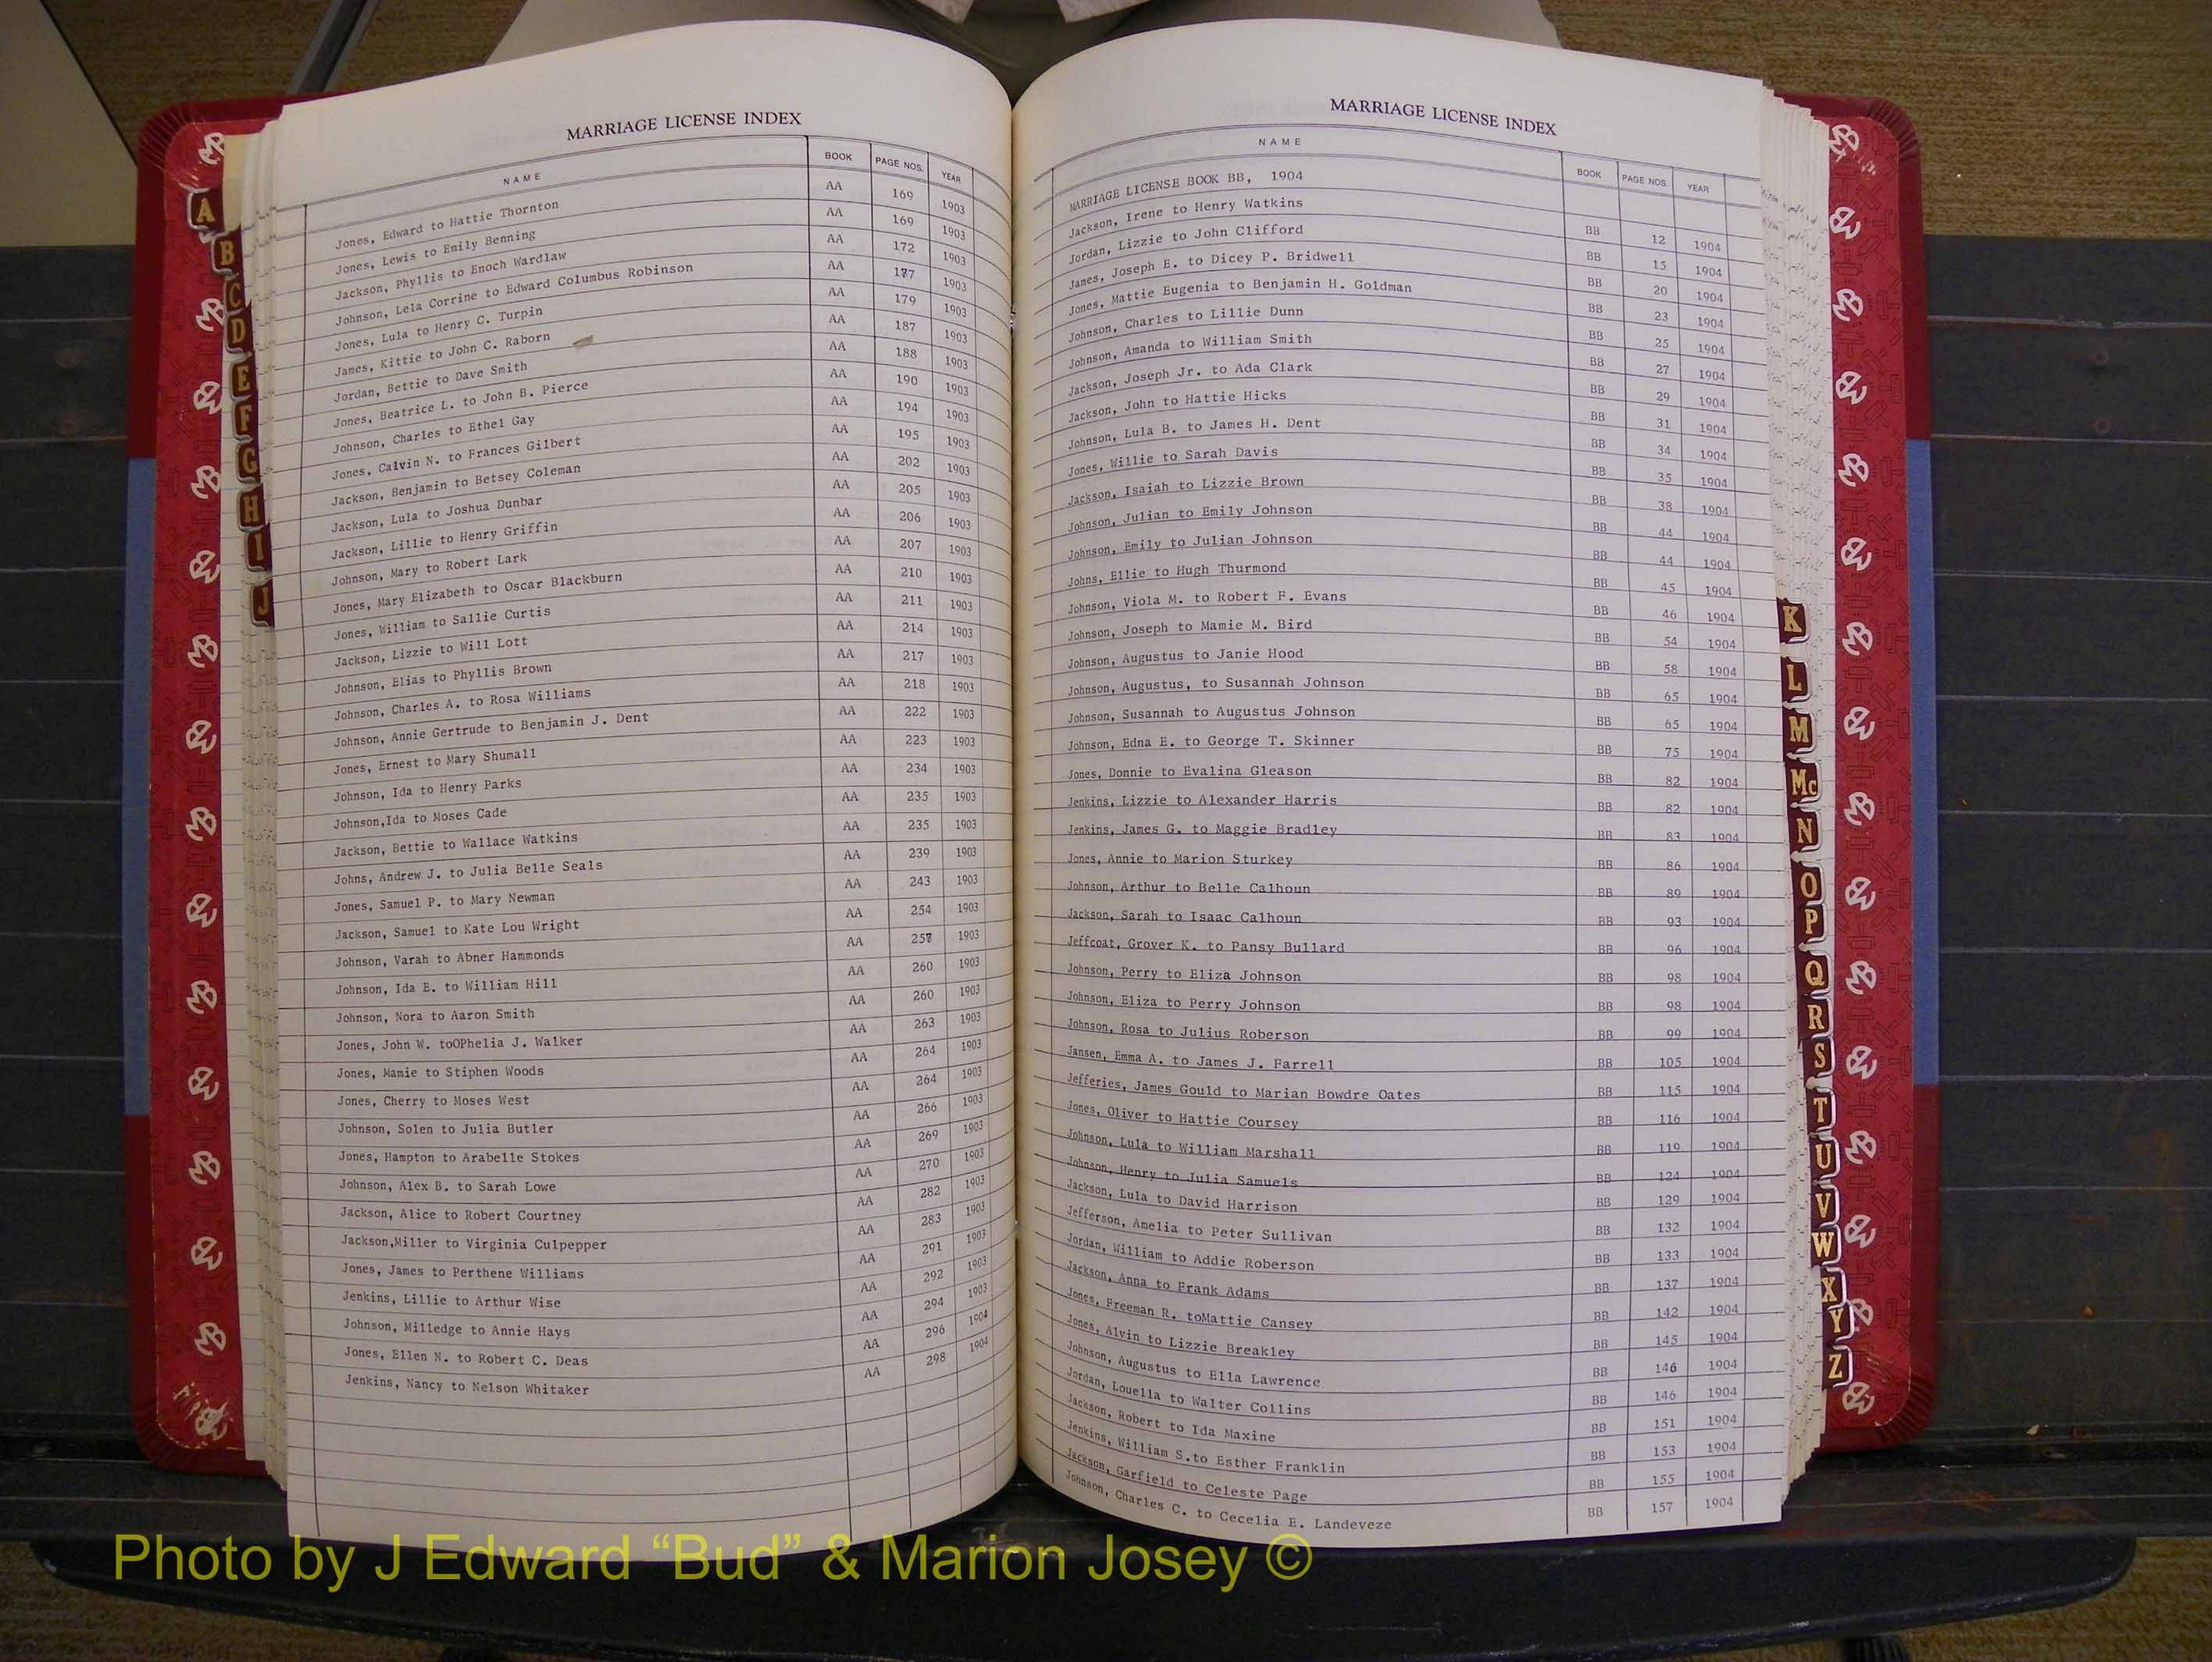 MARRIAGE LICENSE INDEX
NAME BOOK PAGE NOS. YEAR
Jones, Edward to Hattie Thornton AA 169 1903
Jones, Lewis to Emily Benning AA 169 1903
Jackson, Phyllis to Enoch Wardlaw AA 172 1903
Johnson, Lela Corrine to Edward Columbus Robinson AA 177 1903
Jones, Lula to Henry C. Turpin AA 179 1903
James, Kittie to John C. Raborn AA 187 1903
Jordan, Bettie to Dave Smith AA 188 1903
Jones, Beatrice L. to John B. Pierce AA 190 1903
Johnson, Charles to Ethel Gay AA 194 1903
Jones, Calvin N. to Frances Gilbert AA 195 1903
Jackson, Benjamin to Betsey Coleman AA 202 1903
Jackson, Lula to Joshua Dunbar AA 205 1903
Jackson, Lillie to Henry Griffin AA 206 1903
Johnson, Mary to Robert Lark AA 207 1903
Jones, Mary Elizabeth to Oscar Blackburn AA 210 1903
Jones, William to Sallie Curtis AA 211 1903
Jackson, Lizzie to Will Lott AA 214 1903
Johnson, Elias to Phyllis Brown AA 217 1903
Johnson, Charles A. to Rosa Williams AA 218 1903
Johnson, Annie Gertrude to Benjamin J. Dent AA 222 1903
Jones, Ernest to Mary Shumall AA 223 1903
Johnson, Ida to Henry Parks AA 234 1903
Johnson,Ida to Moses Cade AA 235 1903
Jackson, Bettie to Wallace Watkins AA 235 1903
Johns, Andrew J. to Julia Belle Seals AA 239 1903
Jones, Samuel P. to Mary Newman AA 243 1903
Jackson, Samuel to Kate Lou Wright AA 254 1903
Johnson, Varah to Abner Hammonds AA 257 1903
Johnson, Ida E. to William Hill AA 260 1903
Johnson, Nora to Aaron Smith AA 260 1903
Jones, John W. toOPhelia J. Walker AA 263 1903
Jones, Mamie to Stiphen Woods AA 264 1903
Jones, Cherry to Moses West AA 264 1903
Johnson, Solen to Julia Butler AA 266 1903
Jones, Hampton to Arabelle Stokes AA 269 1903
Johnson, Alex B. to Sarah Lowe AA 270 1903
Jackson, Alice to Robert Courtney AA 282 1903
Jackson,Miller to Virginia Culpepper AA 283 1903
Jones, James to Perthene Williams AA 291 1903
Jenkins, Lillie to Arthur Wise AA 292 1903
Johnson, Milledge to Annie Hays AA 294 1903
Jones, Ellen N. to Robert C. Deas AA 296 1904
Jenkins, Nancy to Nelson Whitaker AA 298 1904
MARRIAGE LICENSE INDEX
NAME BOOK PAGE NOS. YEAR
MARRIAGE LICENSE BOOK BB, 1904
Jackson, Irene to Henry Watkins BB 12 1904
Jordan, Lizzie to John Clifford BB 15 1904
James, Joseph E. to Dicey P. Bridwell BB 20 1904
Jones, Mattie Eugenia to Benjamin H. Goldman BB 23 1904
Johnson, Charles to Lillie Dunn BB 25 1904
Johnson, Amanda to William Smith BB 27 1904
Jackson, Joseph Jr. to Ada Clark BB 29 1904
Jackson, John to Hattie Hicks BB 31 1904
Johnson, Lula B. to James H. Dent BB 34 1904
Jones, Willie to Sarah Davis BB 35 1904
Jackson, Isaiah to Lizzie Brown BB 38 1904
Johnson, Julian to Emily Johnson BB 44 1904
Johnson, Emily to Julian Johnson BB 44 1904
Johns, Ellie to Hugh Thurmond BB 45 1904
Johnson, Viola M. to Robert F. Evans BB 46 1904
Johnson, Joseph to Mamie M. Bird BB 54 1904
Johnson, Augustus to Janie Hood BB 58 1904
Johnson, Augustus, to Susannah Johnson BB 65 1904
Johnson, Susannah to Augustus Johnson BB 65 1904
Johnson, Edna E. to George T. Skinner BB 75 1904
Jones, Donnie to Evalina Gleason BB 82 1904
Jenkins, Lizzie to Alexander Harris BB 82 1904
Jenkins, James G. to Maggie Bradley BB 83 1904
Jones, Annie to Marion Sturkey BB 86 1904
Johnson, Arthur to Belle Calhoun BB 89 1904
Jackson, Sarah to Isaac Calhoun BB 93 1904
Jeffcoat, Grover K. to Pansy Bullard BB 96 1904
Johnson, Perry to Eliza Johnson BB 98 1904
Johnson, Eliza to Perry Johnson BB 98 1904
Johnson, Rosa to Julius Roberson BB 99 1904
Jansen, Emma A. to James J. Farrell BB 105 1904
Jefferies, James Gould to Marian Bowdre Oates BB 115 1904
Jones, Oliver to Hattie Coursey BB 116 1904
Johnson, Lula to William Marshall BB 119 1904
Johnson, Henry to Julia Samuels BB 124 1904
Jackson, Lula to David Harrison BB 129 1904
Jefferson, Amelia to Peter Sullivan BB 132 1904
Jordan, William to Addie Roberson BB 133 1904
Jackson, Anna to Frank Adams BB 137 1904
Jones, Freeman R. toMattie Cansey BB 142 1904
Jones, Alvin to Lizzie Breakley BB 145 1904
Johnson, Augustus to Ella Lawrence BB 146 1904
Jordan, Louella to Walter Collins BB 146 1904
Jackson, Robert to Ida Maxine BB 151 1904
Jenkins, William S.to Esther Franklin BB 153 1904
Jackson, Garfield to Celeste Page BB 155 1904
Johnson, Charles C. to Cecelia E. Landeveze BB 157 1904
A
B
C
D
E
F
G
H
I
J
K
L
M
Mc
N
O
P
Q
R
S
T
U
V
W
X
Y
Z
Photo by J Edward “Bud” & Marion Josey ©